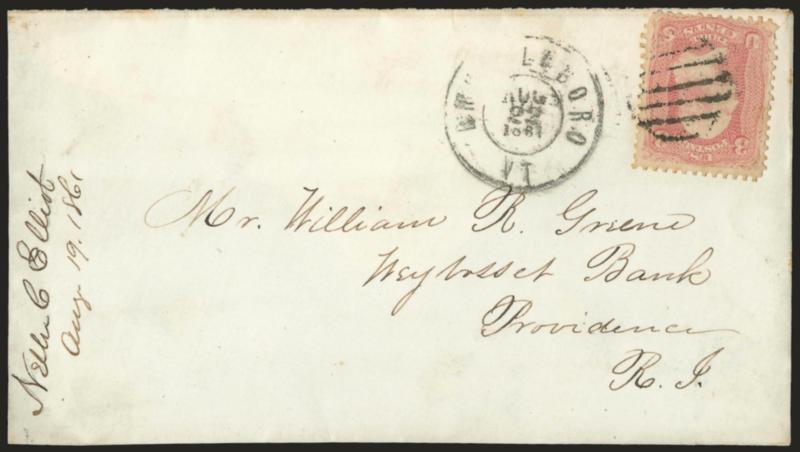 LEBORO
VT
AUG
1861
U S
THREE CENTS
U.S. POSTAGE
3
Mr. William R. Greene
Weybosset Bank
Providence
R. I.
Nellie C Elliot
Aug. 19. 1861